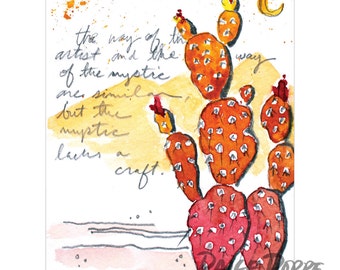 the way of the
artist and the way
of the mystic
are similar
but the
mystic
lacks a
craft.